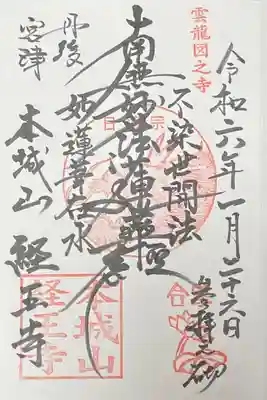 雲龍図之寺
令和六年一月二十六日
参拝之砌
不染世間法
南無妙法蓮華経
如蓮華在水
丹後
宮津
本城山
経王寺
本城山
経王寺